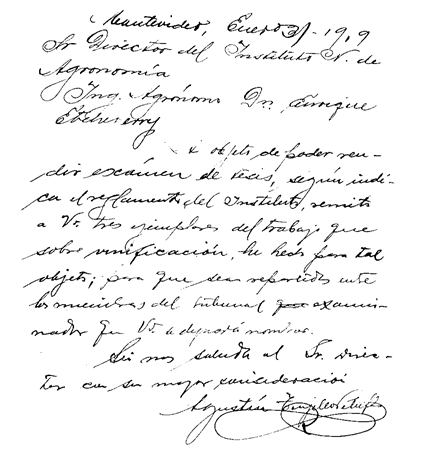 Montevideo, Enero 31-1919
Sr Director del Instituto N. de
Agronomía
Ing. Agrónomo Dn. Enrique
Etcheverry
objeto de poder ren-
dir exámen de tésis, según indi-
ca el reglamento del Instituto, remito
a Vd. tres ejemplares del trabajo que
sobre vinificación, he hecho para tal
objeto; para que sean repartidos entre
los miembros del tribunal exami-
nador que Vd. nombrar.
Sin mas saluda al Sr. Direc-
tor con su mayor consideración
Agustín